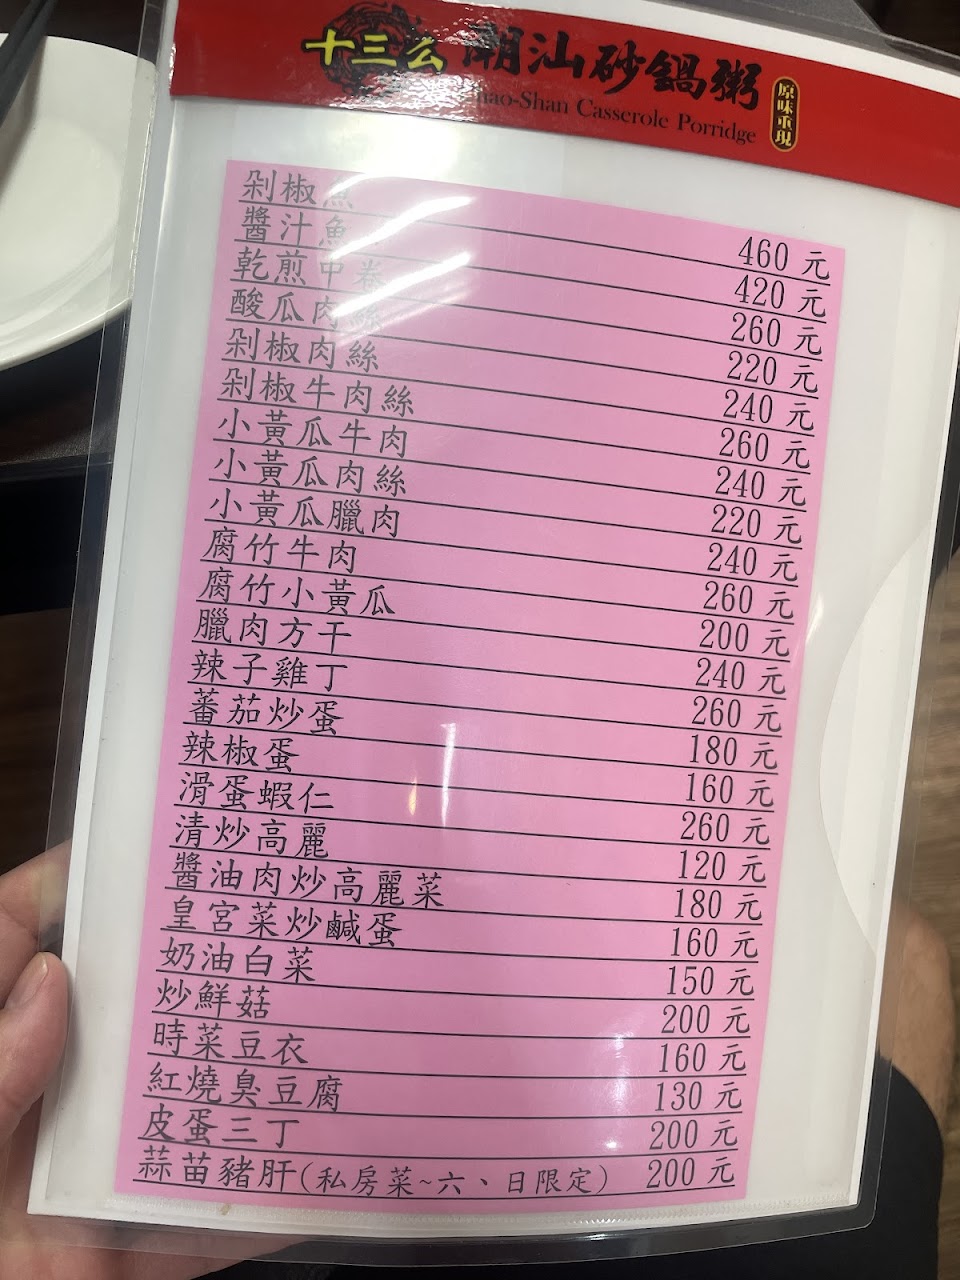 十三么 潮汕砂鍋粥 原味重現
hao-Shan Casserole Porridge
剁椒魚 460 元
醬汁魚 420 元
乾煎中卷 260 元
酸瓜肉絲 220 元
剁椒肉絲 240 元
剁椒牛肉絲 260 元
小黃瓜牛肉 240 元
小黃瓜肉絲 220 元
小黃瓜臘肉 240 元
腐竹牛肉 260 元
腐竹小黃瓜 200 元
臘肉方干 240 元
辣子雞丁 260 元
蕃茄炒蛋 180 元
辣椒蛋 160 元
滑蛋蝦仁 260 元
清炒高麗 120 元
醬油肉炒高麗菜 180 元
皇宮菜炒鹹蛋 160 元
奶油白菜 150 元
炒鮮菇 200 元
時菜豆衣 160 元
紅燒臭豆腐 130 元
皮蛋三丁 200 元
蒜苗豬肝(私房菜~六、日限定) 200 元